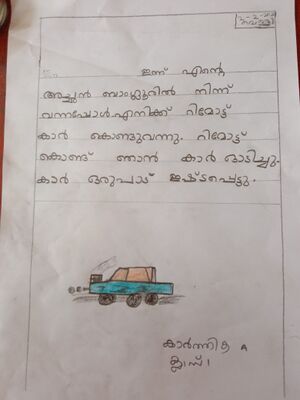 ഇന്ന് എന്റെ
അച്ഛൻ ബാംഗ്ലൂരിൽ നിന്ന്
വന്നപ്പോൾ എനിക്ക് റിമോട്ട്
കാർ കൊണ്ടുവന്നു. റിമോട്ട്
കൊണ്ട് ഞാൻ കാർ ഓടിച്ചു.
കാർ ഒരുപാട് ഇഷ്ടപ്പെട്ടു.
കാർത്തിക A
ക്ലാസ് 1